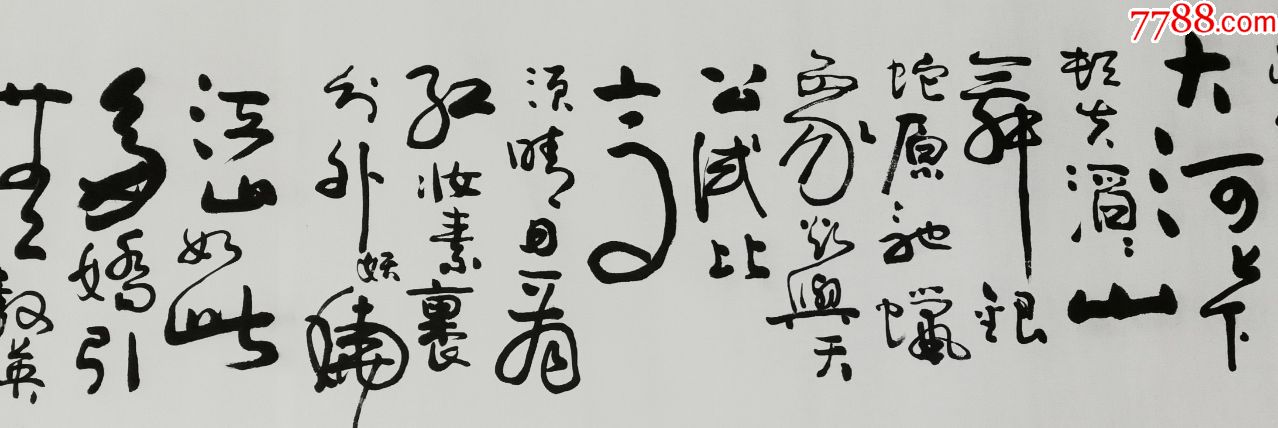 大河上下
顿失滔滔山
舞银
蛇原驰蜡
象欲與天
公试比
高
须晴日看
红妆素裹
分外妖娆
江山如此
多嬌引
無数英
7788.com